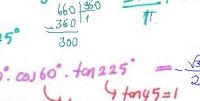 660 | 360
- 360 | 1
300
π
5°
° · cos60° · tan225° = - √3
2
tan45=1